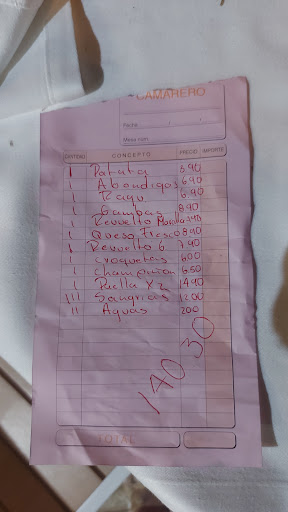 CAMARERO
Fecha / /
Mesa núm.
CANTIDAD CONCEPTO PRECIO IMPORTE
1 Patatas 6.90
1 Abondigas 6.90
1 Ragu 6.90
1 Gambas 8.90
1 Revuelto
1 Queso Fresco 8.90
1 Revuelto G 7.90
1 Croquetas 600
1 Champiñon 6.50
1 Paella X2 1490
III Sangrias 1200
II Aguas 200
140.30
TOTAL